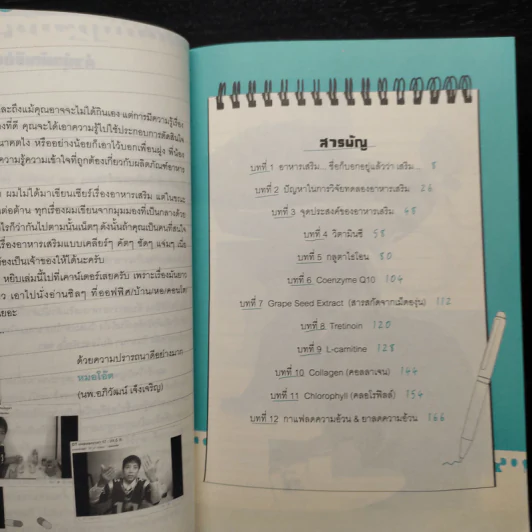 ละถึงแม้คุณอาจจะไม่ได้กินเอง แต่การมีความรู้เรื่อง
องที่ดี คุณจะได้เอาความรู้ไปใช้ประกอบการตัดสินใจ
นาคตไง หรืออย่างน้อยก็เอาไว้บอกเพื่อนฝูง พี่น้อง
ความรู้ความเข้าใจที่ถูกต้องเกี่ยวกับผลิตภัณฑ์อาหาร
ผมไม่ได้มาเขียนเชียร์เรื่องอาหารเสริม แต่ในขณะ
ต่อต้าน ทุกเรื่องผมเขียนจากมุมมองที่เป็นกลางด้วย
ไรก็ว่ากันไปตามนั้นเน็ตๆ ดังนั้นถ้าคุณเป็นคนที่สนใจ
เรื่องอาหารเสริมแบบเคลียร์ๆ คัดๆ ชัดๆ แจ่มๆ เมื่อ
้องเป็นเจ้าของให้ได้นะครับ
หยิบเล่มนี้ไปที่เคาน์เตอร์เลยครับ เพราะเรื่องมันยาว
ว เอาไปนั่งอ่านชิลๆ ที่ออฟฟิศ/บ้าน/หอ/คอนโด
ยอะ
ด้วยความปรารถนาดีอย่างมาก
หมอโอ๊ต
(นพ.อภิวัฒน์ เจ็งเจริญ)
สารบัญ
บทที่ 1 อาหารเสริม... ชื่อก็บอกอยู่แล้วว่า เสริม... 8
บทที่ 2 ปัญหาในการวิจัยทดลองอาหารเสริม 26
บทที่ 3 จุดประสงค์ของอาหารเสริม 48
บทที่ 4 วิตามินซี 58
บทที่ 5 กลูตาไธโอน 80
บทที่ 6 Coenzyme Q10 104
บทที่ 7 Grape Seed Extract (สารสกัดจากเมล็ดองุ่น) 112
บทที่ 8 Tretinoin 120
บทที่ 9 L-carnitine 128
บทที่ 10 Collagen (คอลลาเจน) 144
บทที่ 11 Chlorophyll (คลอโรฟิลล์) 154
บทที่ 12 กาแฟลดความอ้วน & ยาลดความอ้วน 166